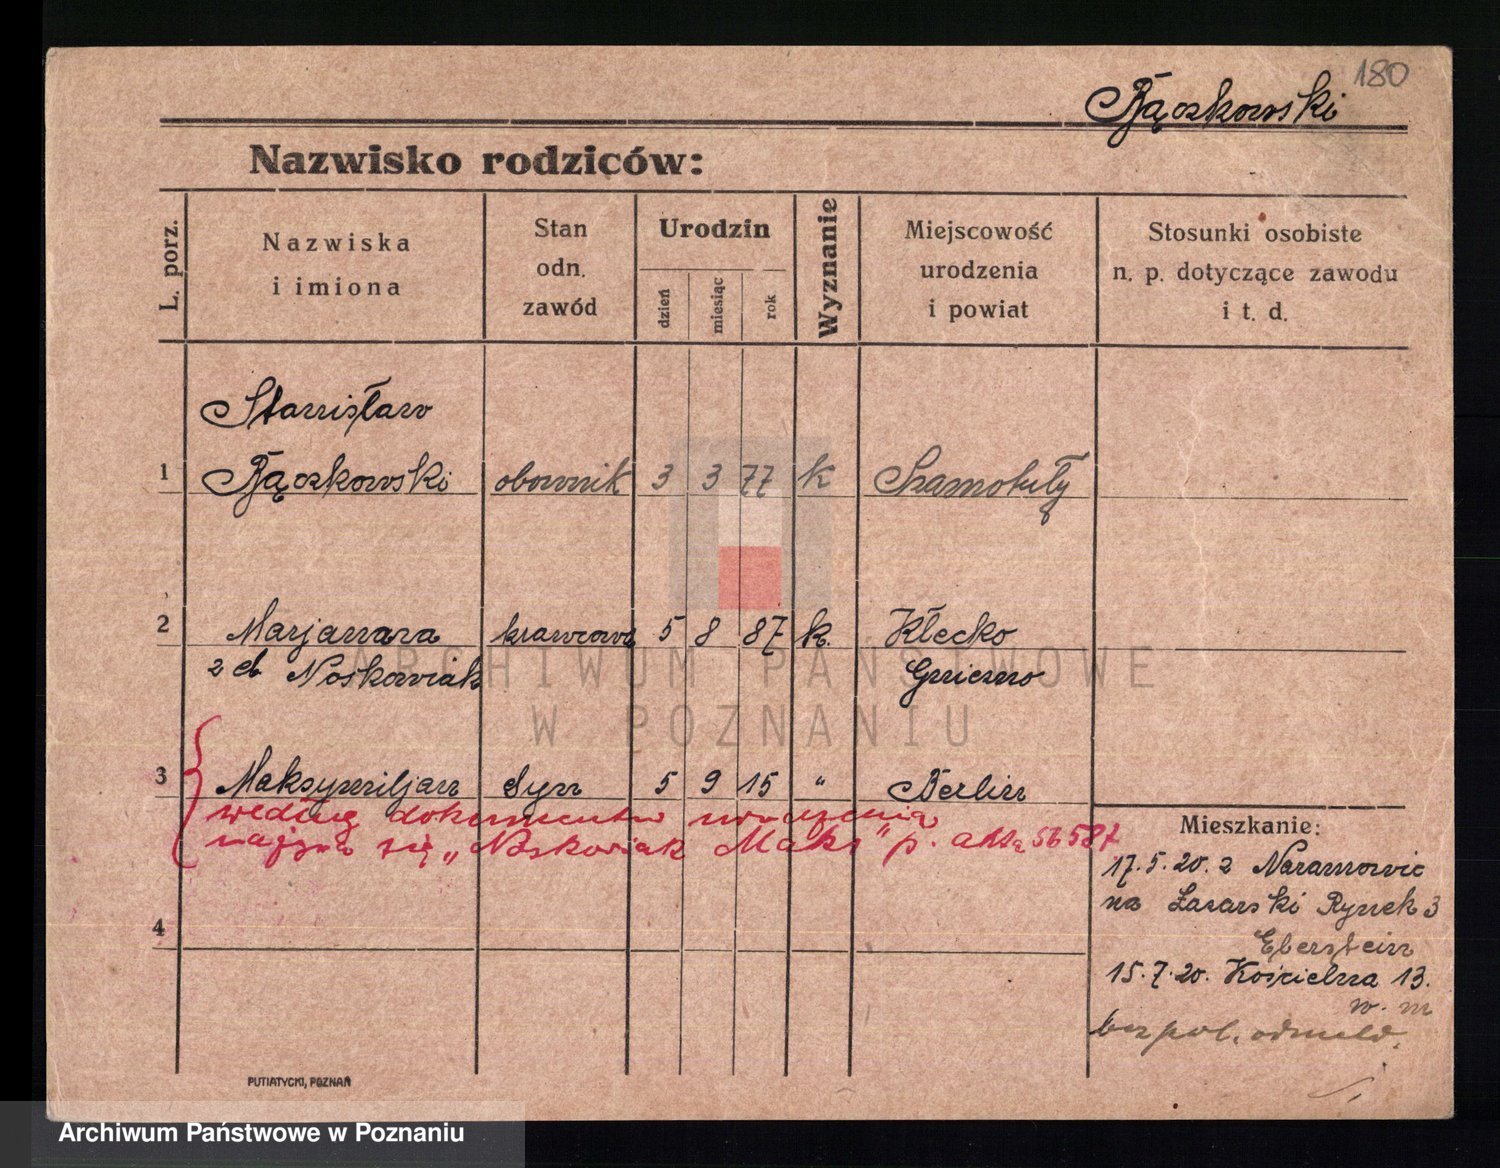 180
Bączkowski
Nazwisko rodziców:
L. porz.
Nazwiska
i imiona
Stan
odn.
zawód
Urodzin
dzień
miesiąc
rok
Wyznanie
Miejscowość
urodzenia
i powiat
Stosunki osobiste
n. p. dotyczące zawodu
i t. d.
Stanisław
1 Bączkowski obownik 3 3 77 k Szamotuły
2 Marjanna krawcowa 5 8 87 k. Kłecko
z d. Noskowiak Gniezno
3 Maksymiljan syn 5 9 15 " Berlin
według dokumentu urodzenia
nazywa się „Noskowiak Maks" p. akta 56587
4
Mieszkanie:
17.5.20. z Naramowic
na Łazarski Rynek 3
Eberstein
15.7.20. Kościelna 13.
w. m
bez pol. odmeld.
PUTIATYCKI, POZNAŃ
ARCHIWUM PAŃSTWOWE
W POZNANIU
Archiwum Państwowe w Poznaniu